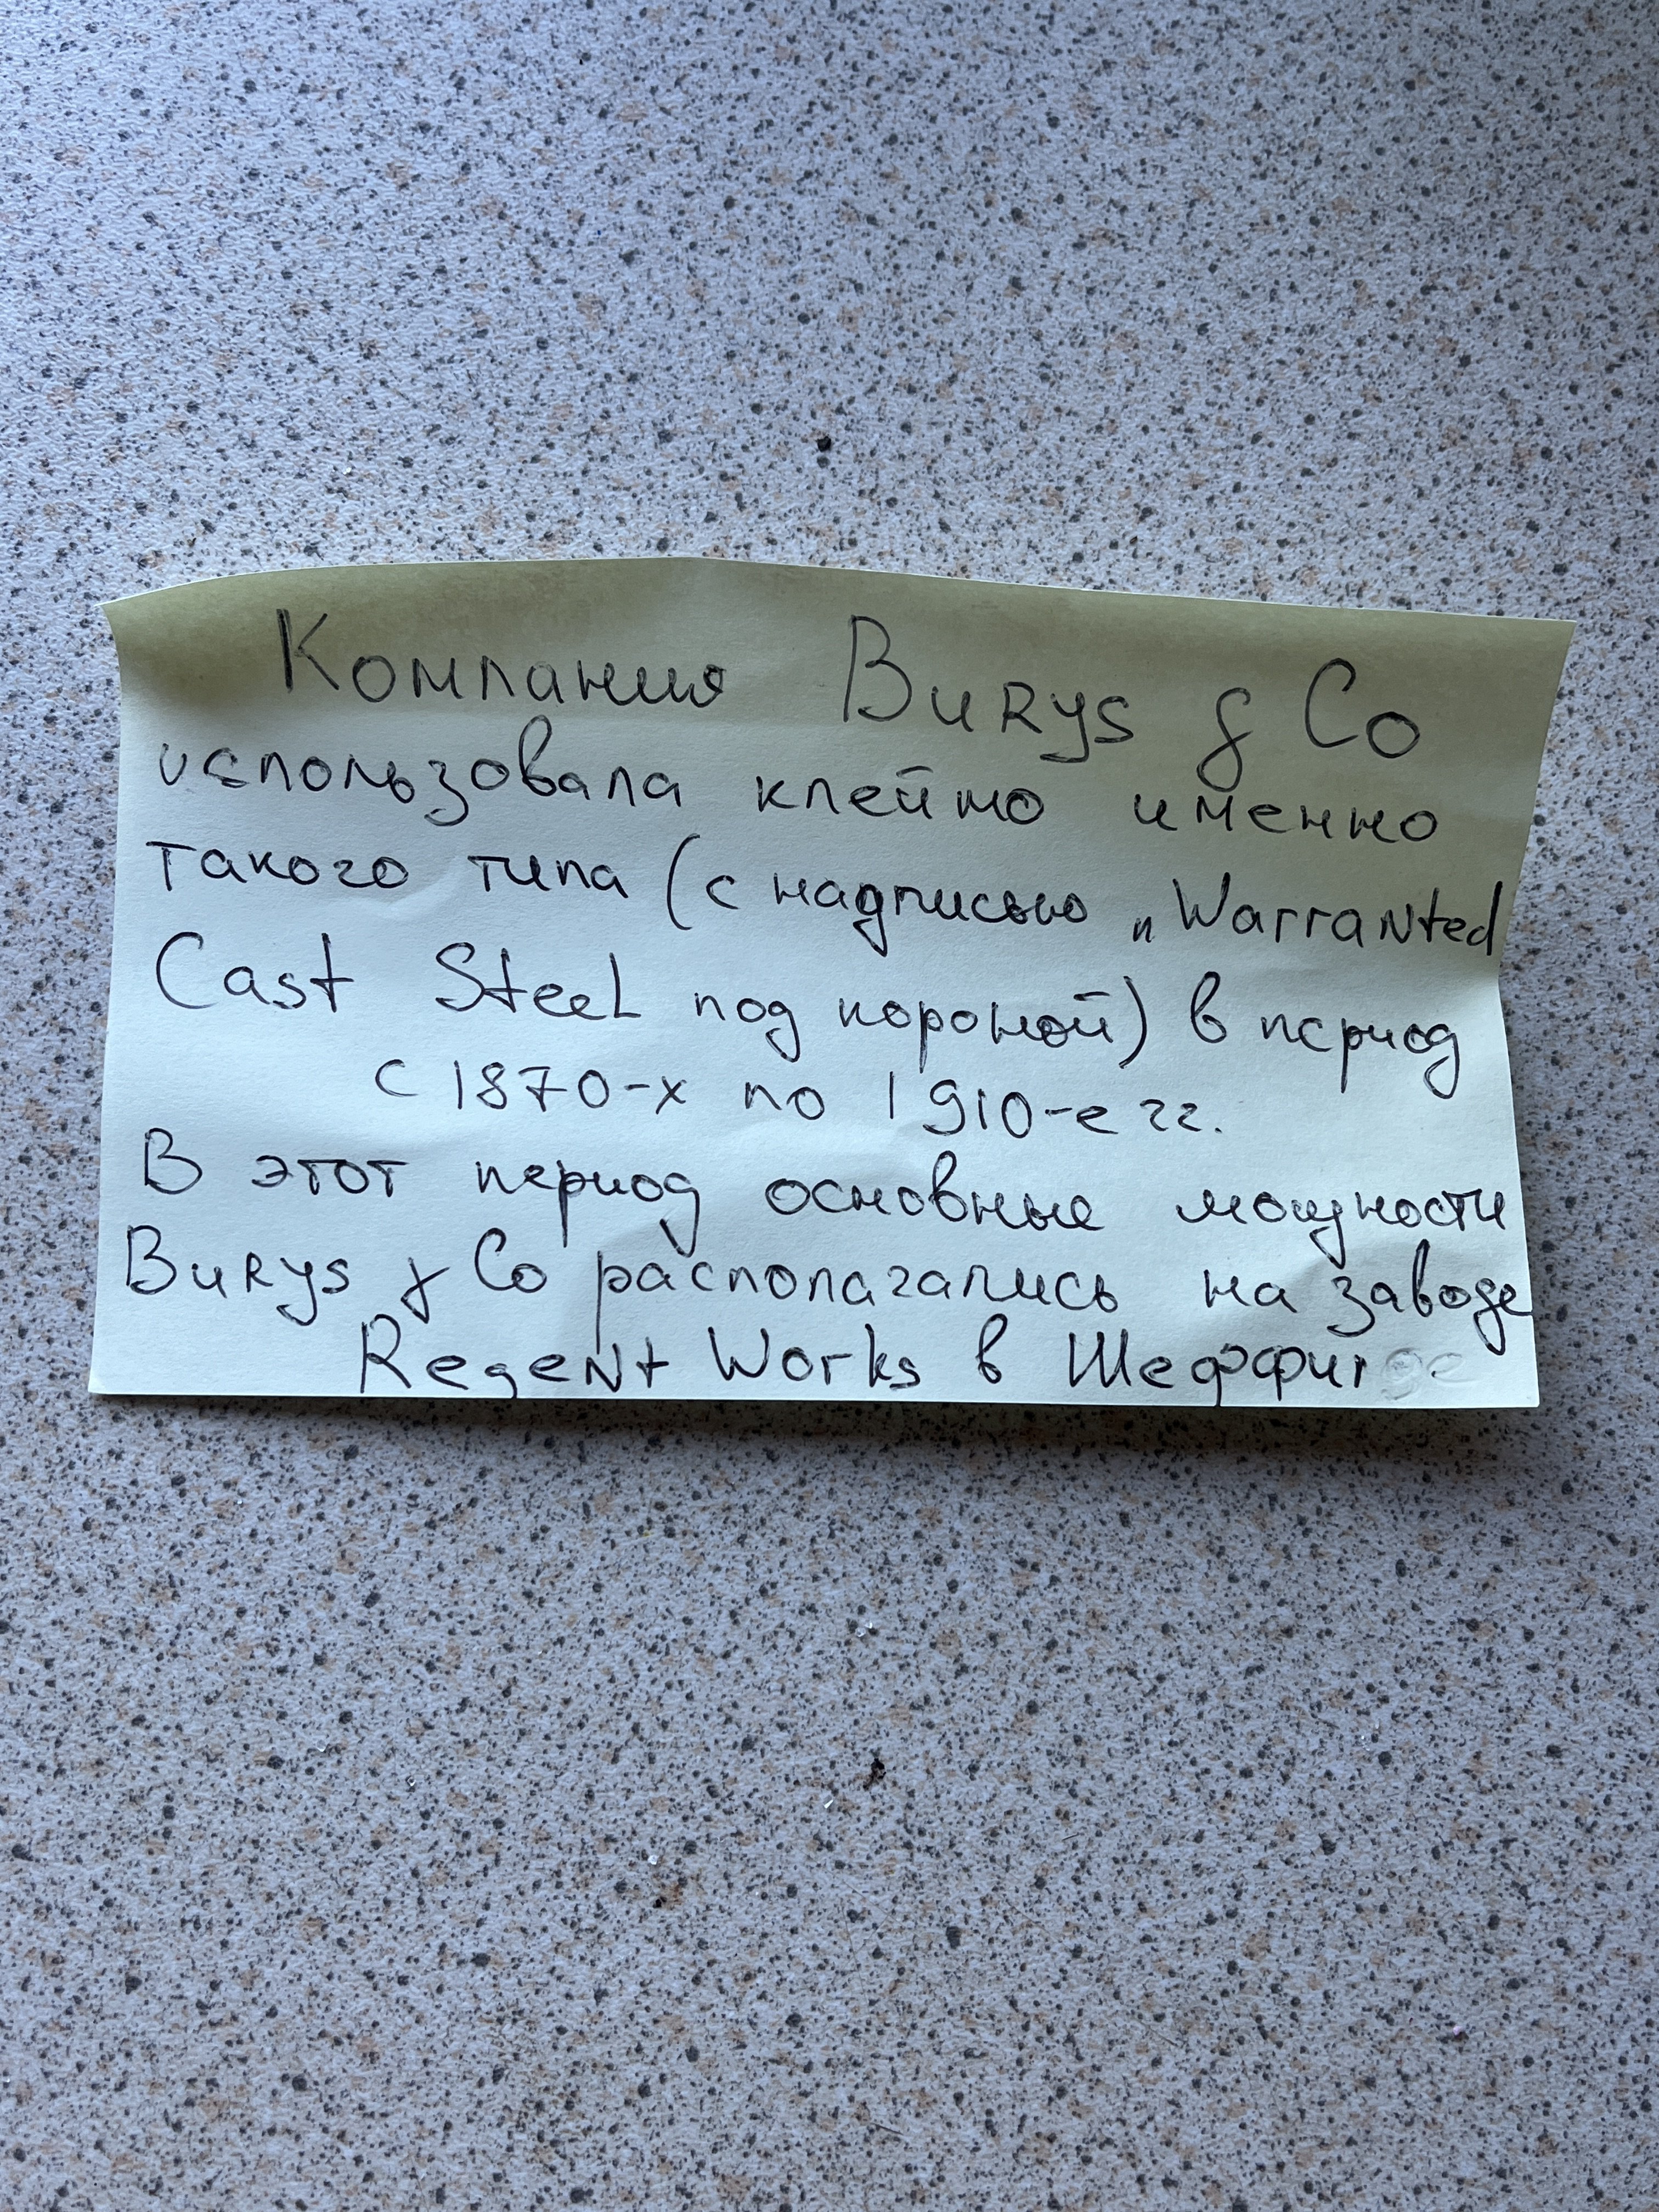 Компания Burys & Co
использовала клеймо именно
такого типа (с надписью „Warranted
Cast Steel под короной) в период
с 1870-х по 1910-е гг.
В этот период основные мощности
Burys & Co располагались на заводе
Regent Works в